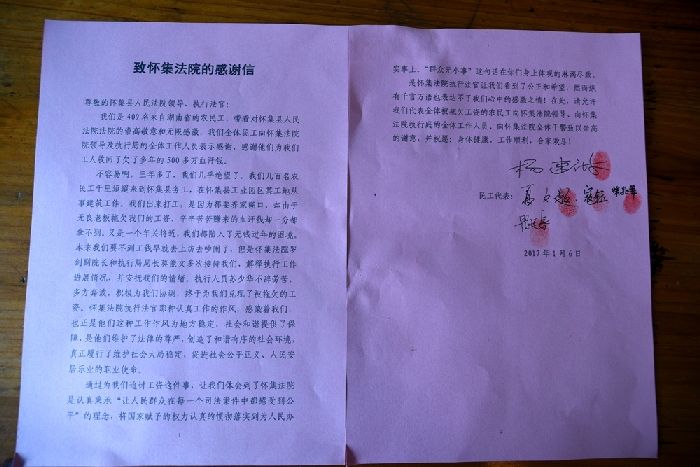 致怀集法院的感谢信
尊敬的怀集县人民法院领导、执行法官：
我们是407名来自湖南省的农民工，带着对怀集县人民
法院法院的崇高敬意和无限感激，我们全体员工向怀集法院
院领导及执行局的全体工作人员表示感谢，感谢他们为我们
工人救回了欠了多年的500多万血汗钱。
不容易啊，三年多了，我们几乎绝望了，我们几百名农
民工千里迢迢来您怀集县务工，在怀集县工业园区某工地从
事建筑工作，我们出来打工，是因为都要养家糊口，但由于
无良老板拖欠我们的工资，辛辛苦苦赚来的血汗钱却一分都
拿不到。又是一个年关将近，我们都陷入了无钱过年的困境。
本来我们要不到工钱早就去上访去哨闹了，但是怀集法院
剑剛院长和执行局局长多次接待我们、解释执行工作
进展情况，并安抚我们的情绪，执行人员苏少华不辞劳苦、
多方奔波，积极为我们协调，终于为我们兑现了被拖欠的工
资。怀集法院执行法官那种认真工作的作风，感染着我们，
也正是他们这种工作作风为地方稳定，社会和谐提供了保
障，是他们维护了法律的尊严，创造了和谐有序的社会环境，
真正履行了维护社会大局稳定，促进社会公平正义、人民安
居乐业的职业使命。
通过为我们追讨工资这件事，让我们体会到了怀集法院
是认真秉承“让人民群众在每一个司法案件中都感受到公
平”的理念，将国家赋予的权力认真的贯彻落实到为人民办
1
实事上，“群众无小事”这句话在你们身上体现的淋漓尽致。
是怀集法院执行法官让我们看到了公平和希望，
千言万语也表达不了我们心中的感激之情！在此，请允许
我们代表全体被拖欠工资的农民工向怀集法院领导、向怀集
法院执行庭的全体工作人员、向怀集法院全体干警致以崇高
的谢意，并祝愿：身体健康，工作顺利，合家欢乐！
民工代表：
2017年1月6日